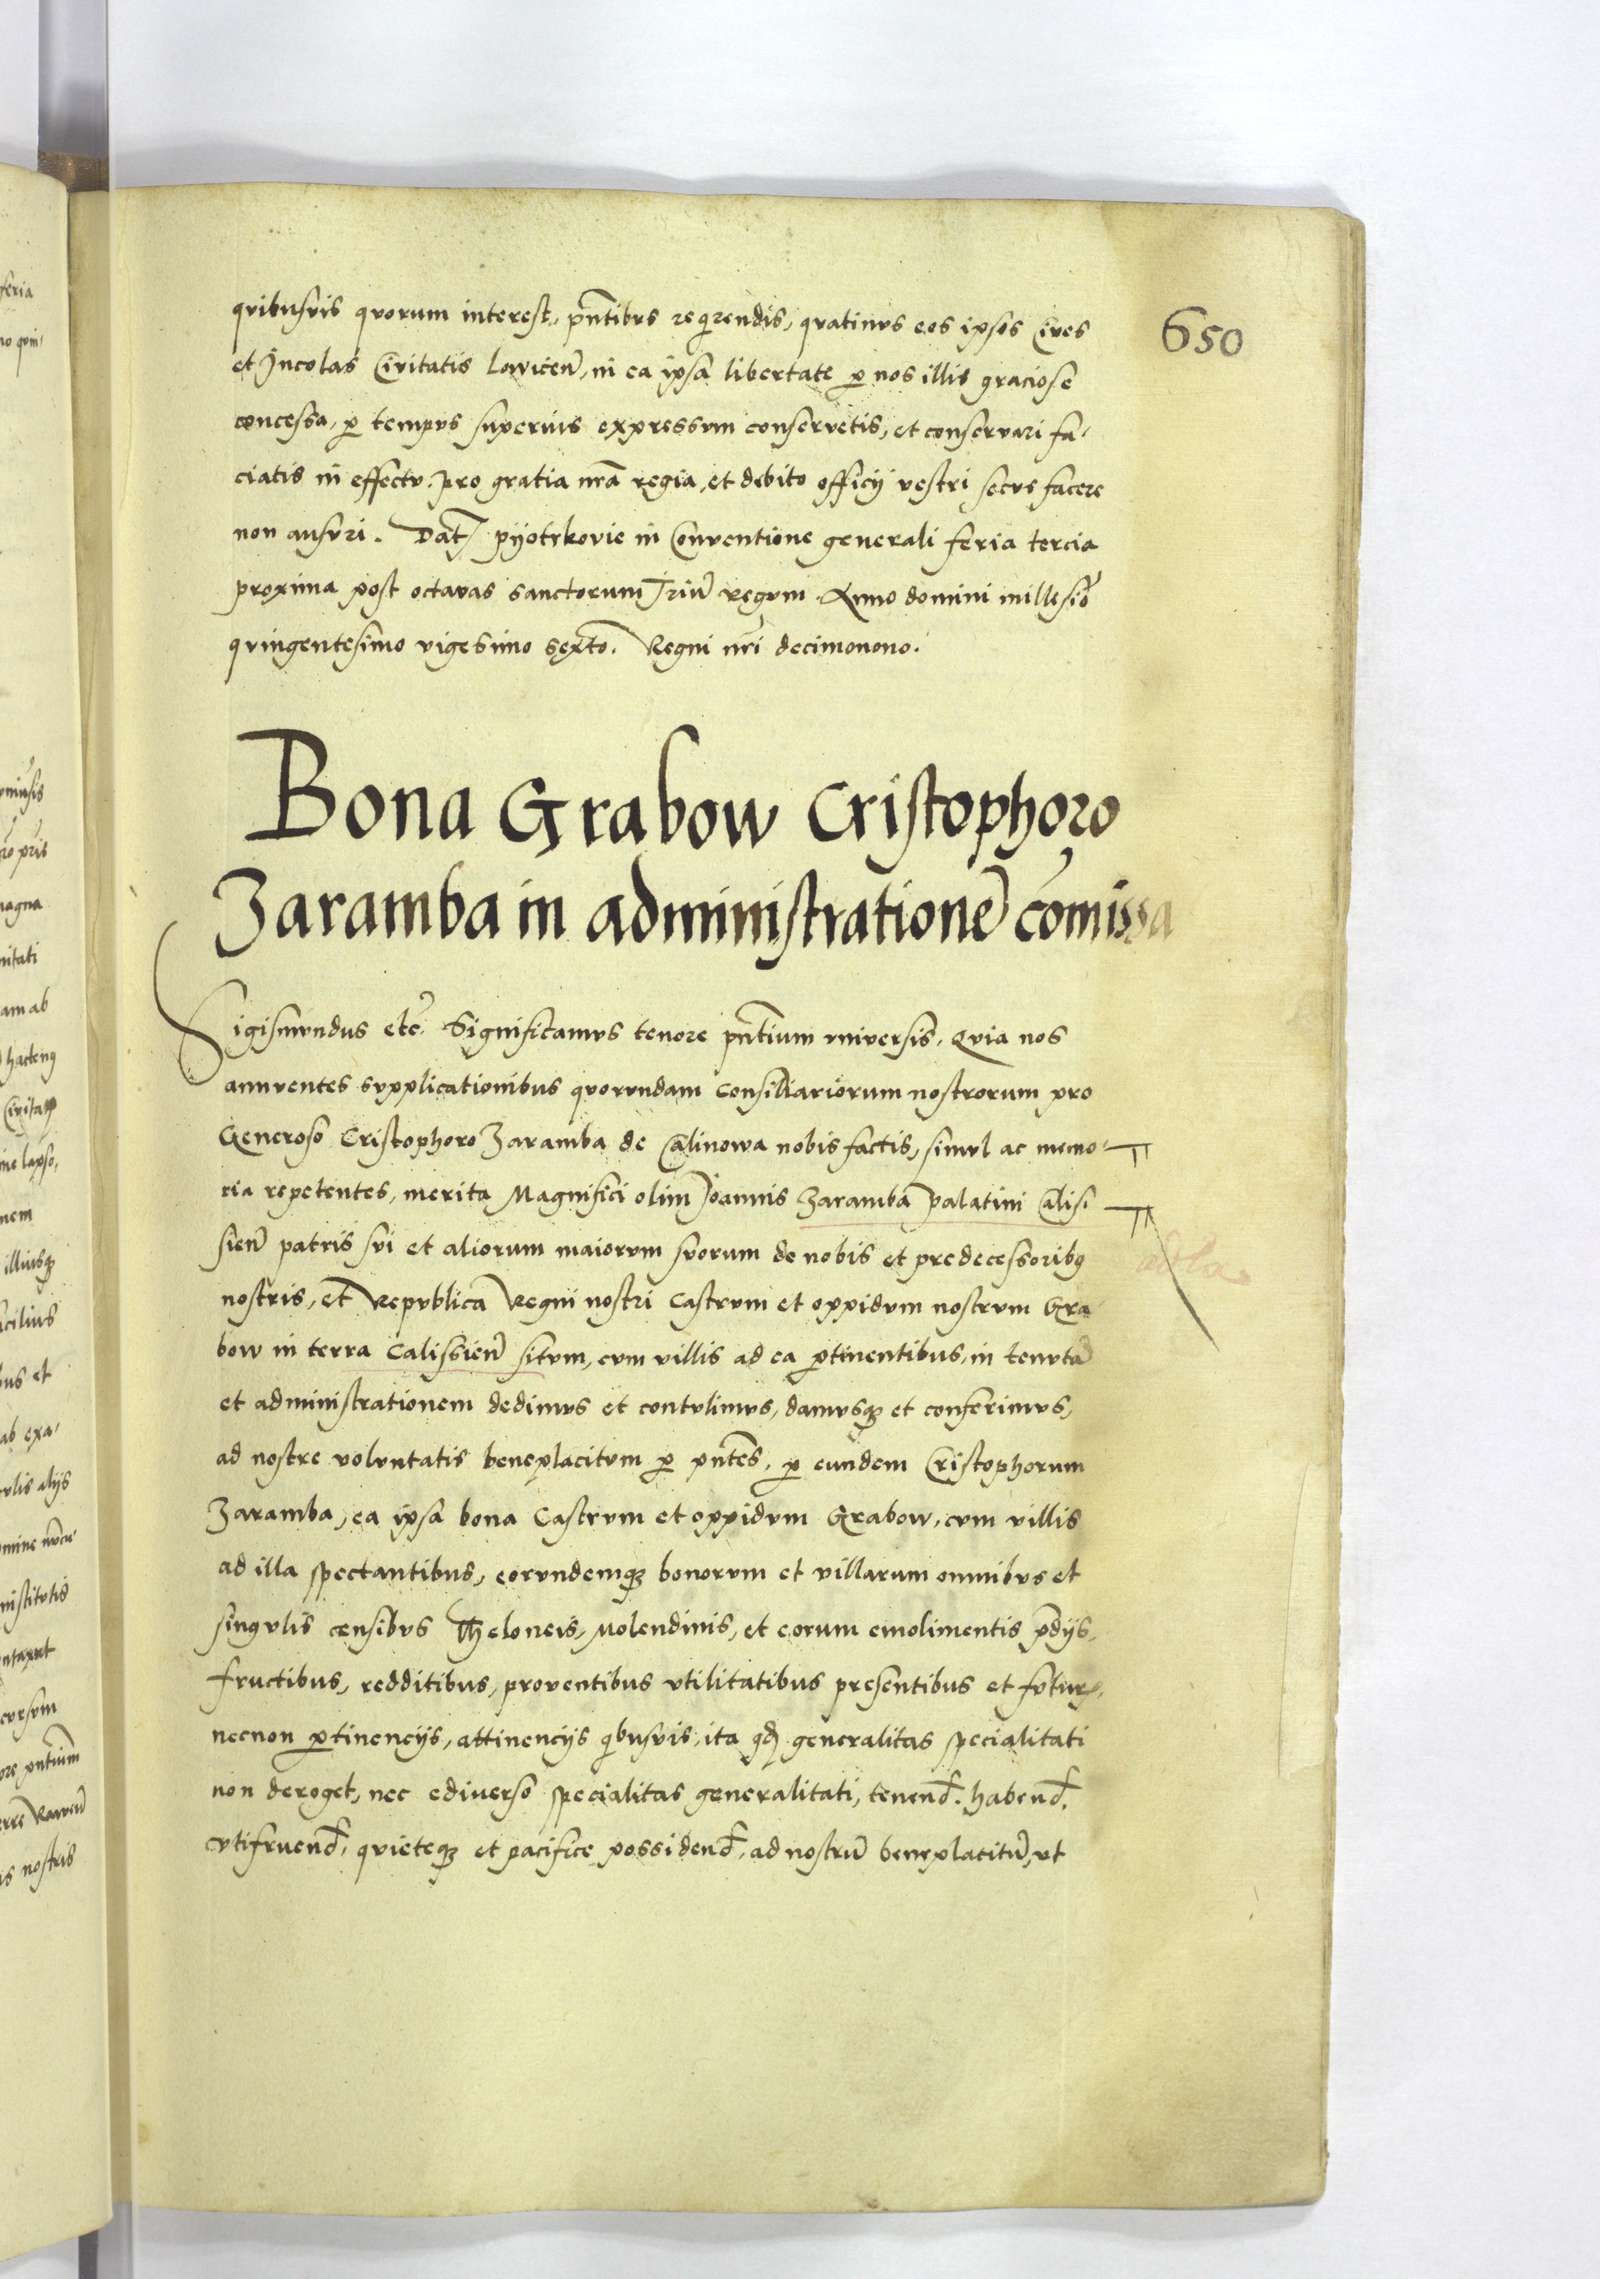 650
qvibusvis qvorum interest, pn̄tibvs reqirendis, qvatinvs eos ipsos Cives
et Incolas Civitatis Lovicen̄, in ea ipsa libertate p nos illis graciose
concessa, p tempvs superius expressvm conservetis, et conservari fa-
ciatis in effectv. Pro gratia nr̄a regia, et debito officij vestri secvs facere
non ausvri. Dat̄ pijotrkovie in Conventione generali feria tercia
proxima post octavas sanctorum Triū regvm. Anno domini millesiō
qvingentesimo vigesimo sexto. Regni nr̄i decimonono.
Bona Grabow Cristophoro
Zaramba in administrationē cōmissa
Sigismvndus etc̄. Significamvs tenore pn̄tium vniversis, Qvia nos
annventes svpplicationibus qvorvndam Consiliariorum nostrorum pro
Generoso Cristophoro Zaramba de Calinowa nobis factis, simvl ac memo-
ria repetentes, merita Magnifici olim Joannis Zaramba palatini Calis-
sien̄ patris svi et aliorum maiorvm svorum de nobis et predecessoribꝰ
nostris, et Repvblica Regni nostri Castrvm et oppidvm nostrvm Gra-
bow in terra Calissien̄ sitvm, cvm villis ad ea ptinentibus, in tenvtā
et administrationem dedimvs et contvlimvs, damvsqꝫ et conferimvs,
ad nostre volvntatis beneplacitvm p pn̄tes, p eundem Cristophorum
Zaramba, ea ipsa bona Castrvm et oppidvm Grabow, cvm villis
ad illa spectantibus, eorvndemqꝫ bonorvm et villarum omnibvs et
singvlis censibvs Theloneis, Molendinis, et eorum emolimentis p̄dijs,
fructibus, redditibus, proventibus vtilitatibus presentibus et fvturꝭ,
necnon ptinencijs, attinencijs qibusvis, ita qđ generalitas specialitati
non deroget, nec ediverso specialitas generalitati, tenend̄. habend̄.
vtifruend̄, qvieteqꝫ et pacifice possidend̄, ad nostrū beneplacitū, vt